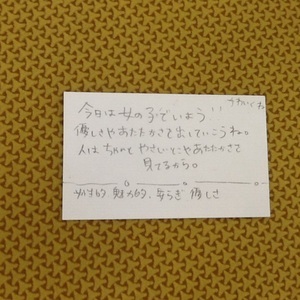 かわいくね
今日は女の子でいよう!!
優しさやあたたかさを出していこうね。
人はちゃんと やさしいとこやあたたかさを
見てるから。
魅力的、安らぎ 優しさ